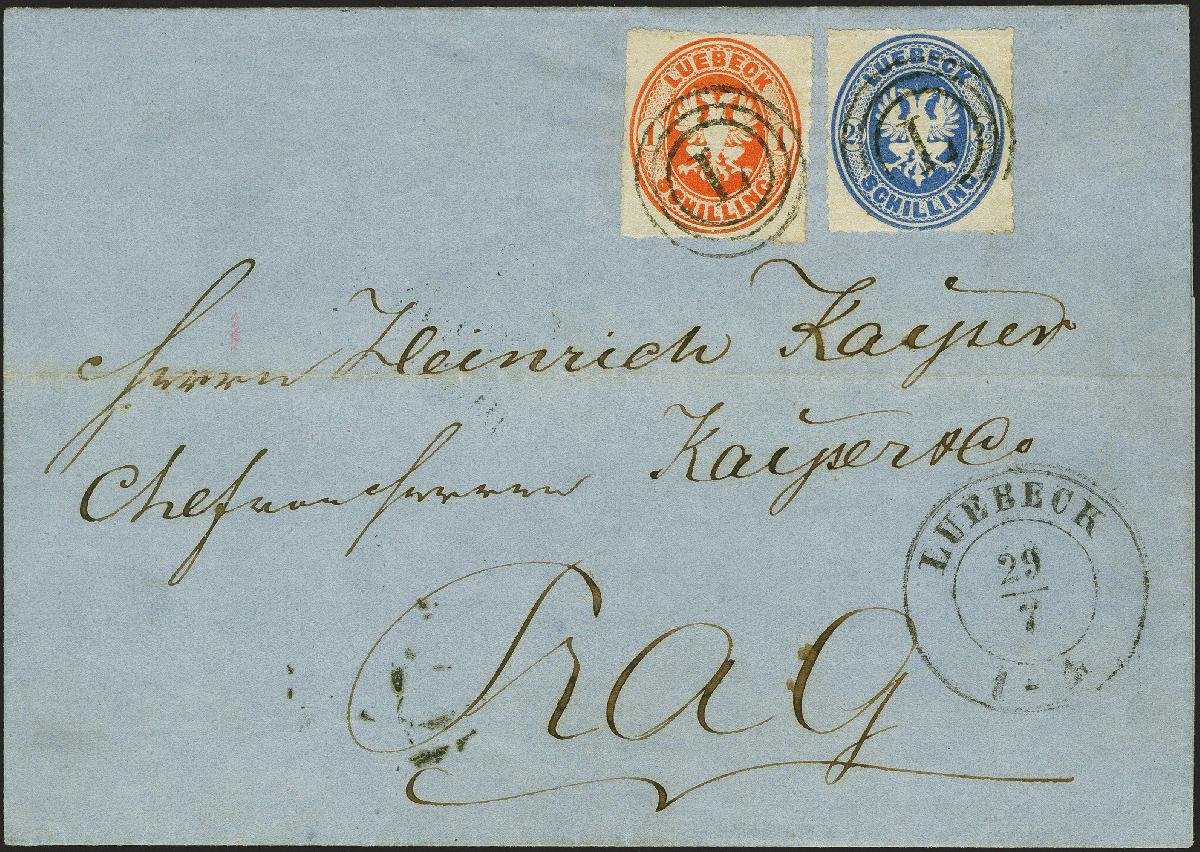 LUEBECK
1 1
SCHILLING
L
LUEBECK
2 2
SCHILLING
L
Herrn Heinrich Kayser
Kayser & Co.
Prag
LUEBECK
29
7
1-4